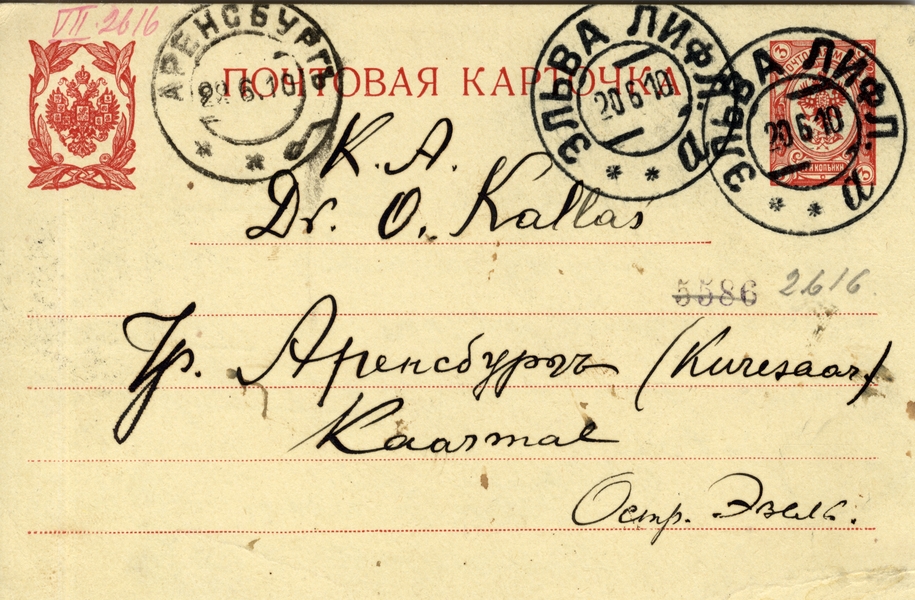 VII 2616
АРЕНСБУРГЪ
22.6.10
ПОЧТОВАЯ КАРТОЧКА
ЭЛЬВА ЛИФЛ.
20 6 10
а
ЭЛЬВА ЛИФЛ.
20 6 10
а
3
3
3
К. А.
Dr. O. Kallas
5586 2616
Гр. Аренсбургъ (Kuresaar)
Kaarmal
Остр. Эзель.